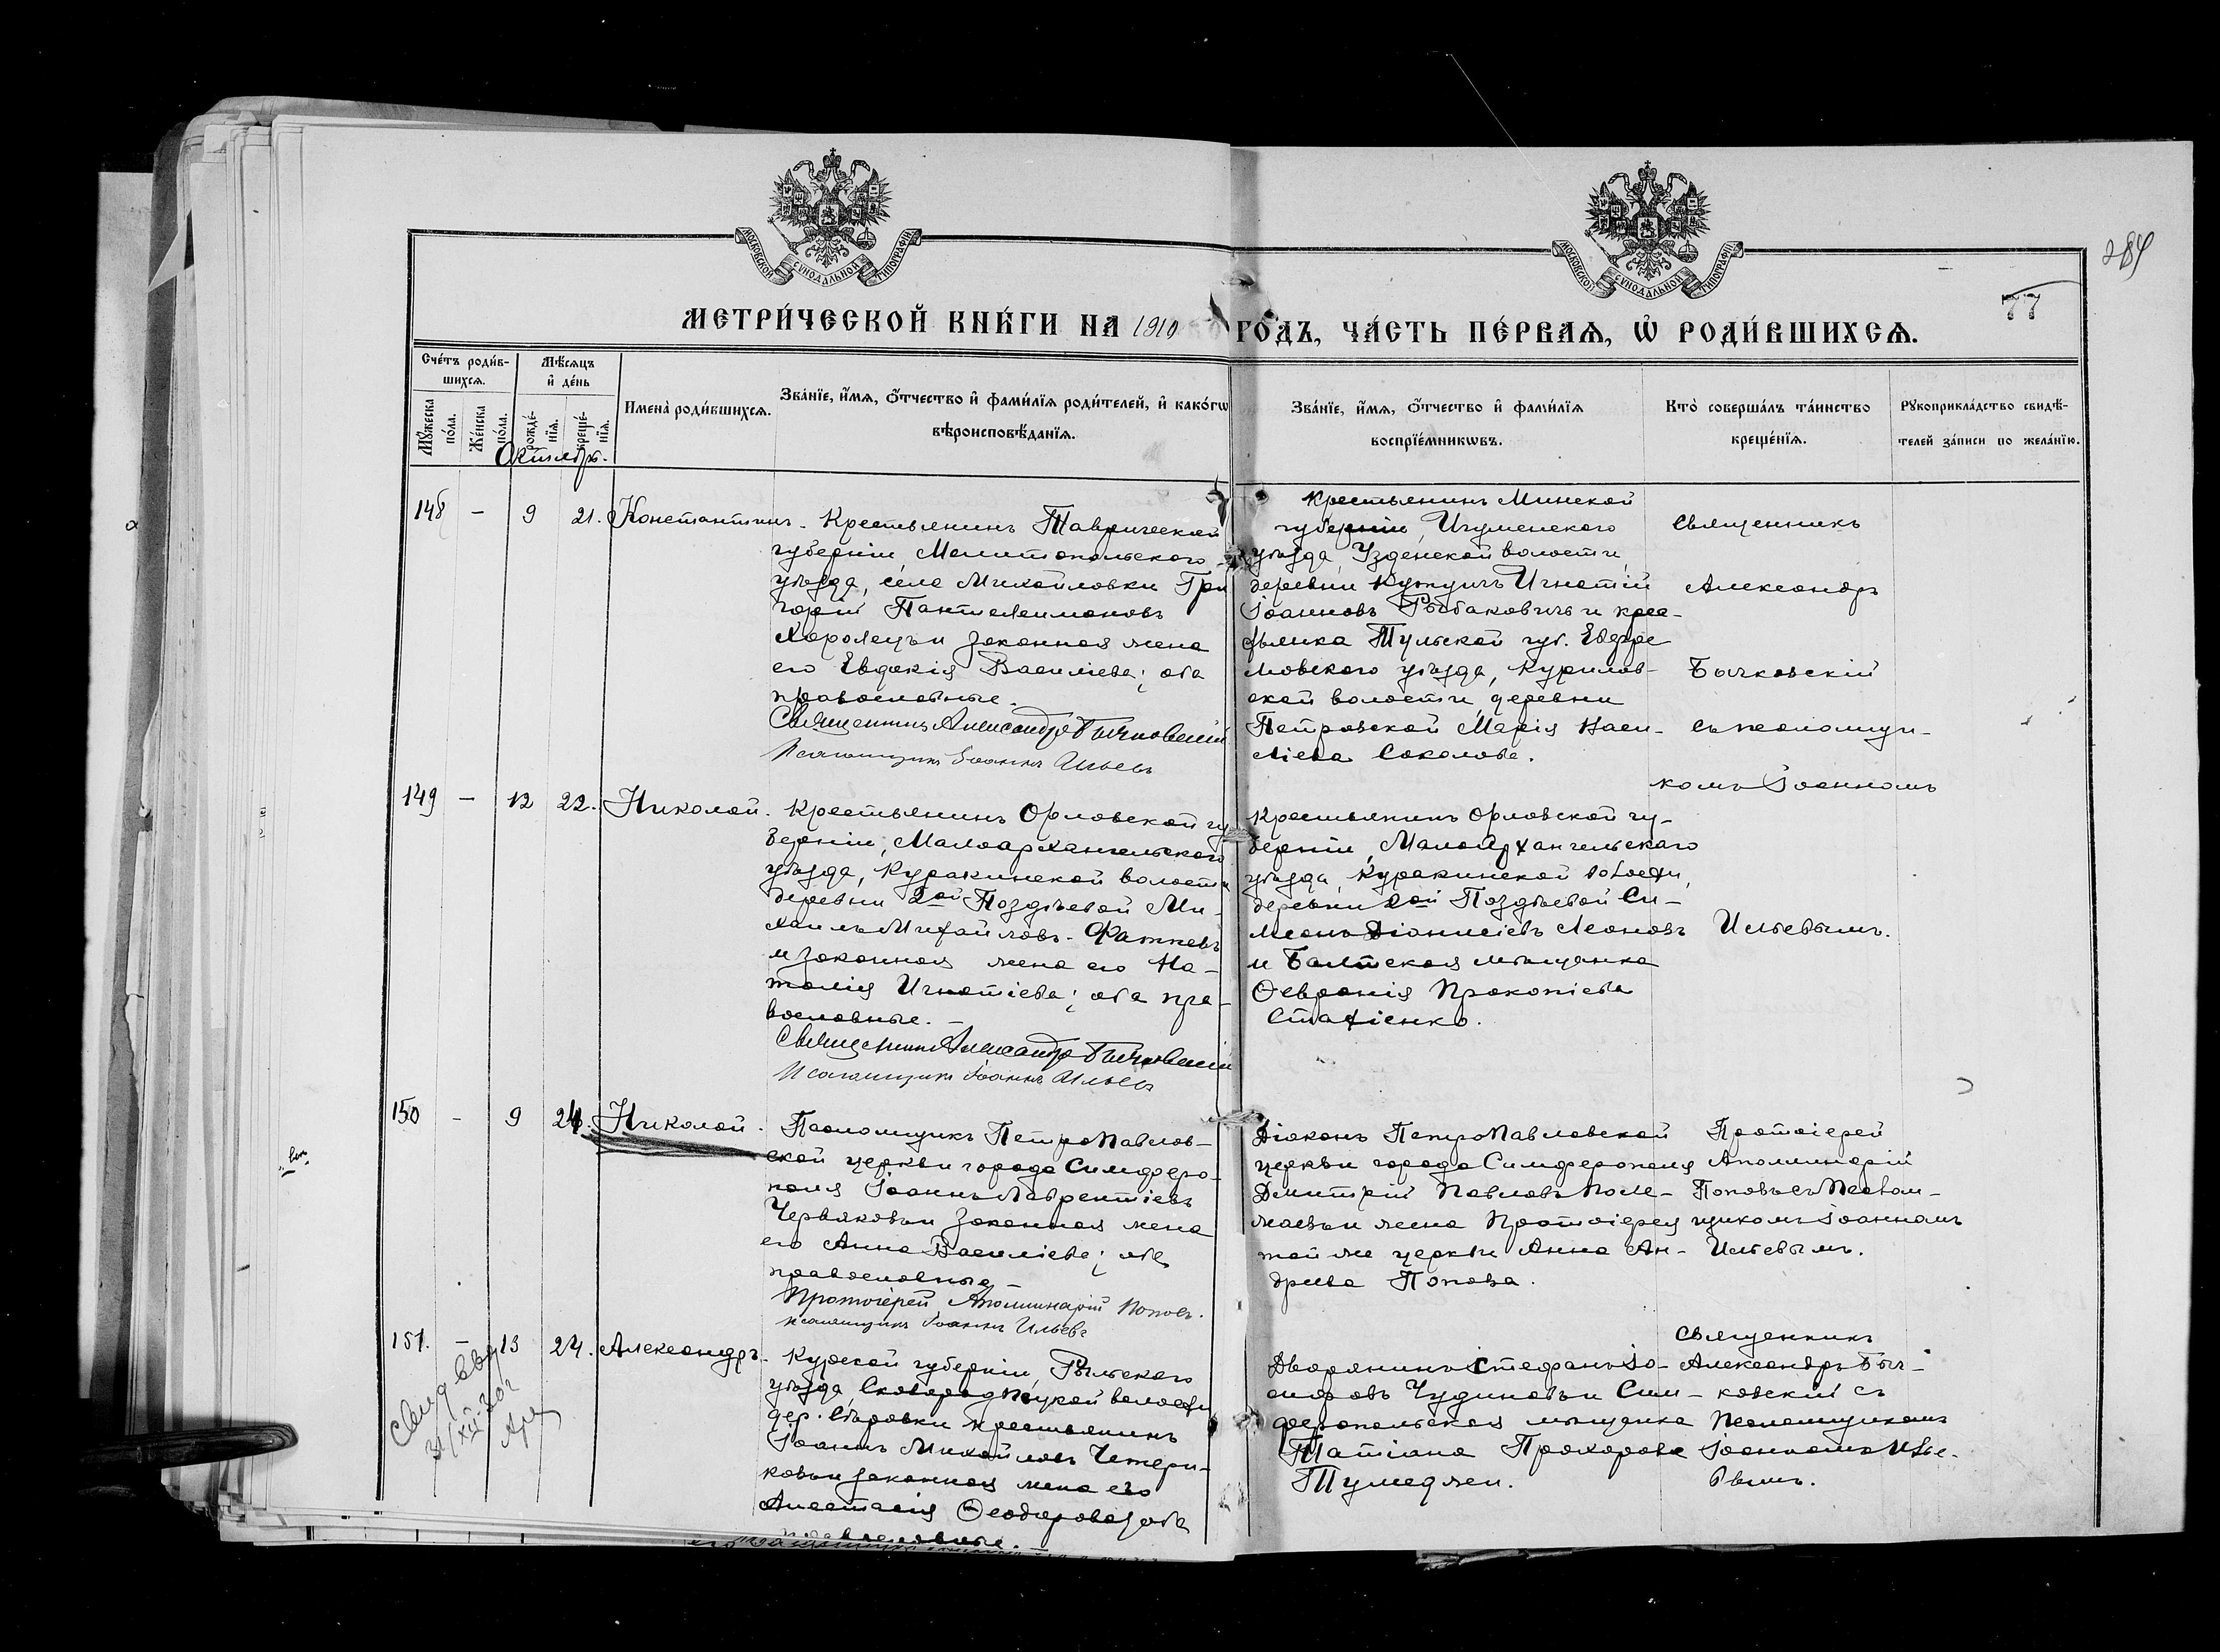 МОСКОВСКОЙ СѴНОДАЛЬНОЙ ТИПОГРАФІИ
МОСКОВСКОЙ СѴНОДАЛЬНОЙ ТИПОГРАФІИ
77
МЕТРИ́ЧЕСКОЙ КНИ́ГИ НА 1910 ГОДЪ, ЧА́СТЬ ПЕ́РВАѦ, Ѡ҆ РОДИ́ВШИХСѦ.
Сче́тъ роди́в-
шихсѧ.
Мѣ́сѧцъ
и҆ де́нь
Мꙋ́жеска
по́ла.
Же́нска
по́ла.
рожде́-
нїѧ.
креще́-
нїѧ.
Имена̀ роди́вшихсѧ.
Зва́нїе, и҆́мѧ, ѻ҆́тчество и҆ фами́лїѧ роди́телей, и҆ како́гѡ
вѣроисповѣ́данїѧ.
Зва́нїе, и҆́мѧ, ѻ҆́тчество и҆ фами́лїѧ
воспрїе́мникѡвъ.
Кто̀ соверша́лъ та́инство
креще́нїѧ.
Рꙋкоприкла́дство свидѣ́-
телей за́писи по жела́нїю.
Октябрь.
148 – 9 21. Константинъ.
Крестьянинъ Таврической
губерніи, Мелитопольского
уѣзда, села Михайловки Гри
горій Пантелеимоновъ
Харолецъ и законная жена
его Евдокія Васильева; оба
православные.
Священникъ Александръ Бычковскій
Псаломщикъ Іоаннъ Ильевъ
Крестьянинъ Минской
губерніи, Игуменского
уѣзда, Узденской волости,
деревни Игнатій
Іоанновъ Рыбаковичъ и крес-
тьянка Тульской губ. Ефре
мовского уѣзда, Курилов-
ской волости, деревни
Петровской Марія Васи-
ліева Соколова.
Священникъ
Александръ
Бычковскій
съ псаломщи-
комъ Іоанномъ
Ильевымъ.
149 – 12 22. Николай.
Крестьянинъ Орловской гу
берніи, Малоархангельского
уѣзда, Куракинской волости
деревни 2ой Поздѣевой Ми-
хаилъ Михайловъ Фатневъ
и законная жена его На-
талія Игнатіева; оба пра-
вославные.
Священникъ Александръ Бычковскій
Псаломщикъ Іоаннъ Ильевъ
Крестьянинъ Орловской гу-
берніи, Малоархангельскаго
уѣзда, Куракинской волости,
деревни 2ой Поздѣевой Си-
меонъ Діонисіевъ Леоновъ
и Балтская мѣщанка
Ѳевронія Прокопіева
150 – 9 24. Николай.
Псаломщикъ Петропавлов-
ской церкви города Симферо-
поля Іоаннъ Лаврентіевъ
Червяковъ и законная жена
его Анна Васильева; оба
православные
Протоіерей Аполлинарій Поповъ.
псаломщикъ Іоаннъ Ильевъ
Діаконъ Петропавловской
церкви города Симферополя
Димитрій Павловъ Поле-
жаевъ и жена Протоіерея
той же церкви Анна Ан-
дреева Попова.
Протоіерей
Аполлинарій
Поповъ съ Псалом-
щикомъ Іоанномъ
Ильевымъ.
151. – 13 24. Александръ.
Курской губерніи, Рыльского
уѣзда волости
дер. крестьянинъ
Іоаннъ Михайловъ Четери-
ковъ и законная жена его
Анастасія Ѳеодорова; оба
православные.
Дворянинъ Стефанъ Іо-
сифовъ Чудиновъ и Сим-
феропольская мѣщанка
Татіана Прохорова
Священникъ
Александръ Быч-
ковскій съ
Псаломщикомъ
Іоанномъ Илье-
вымъ.